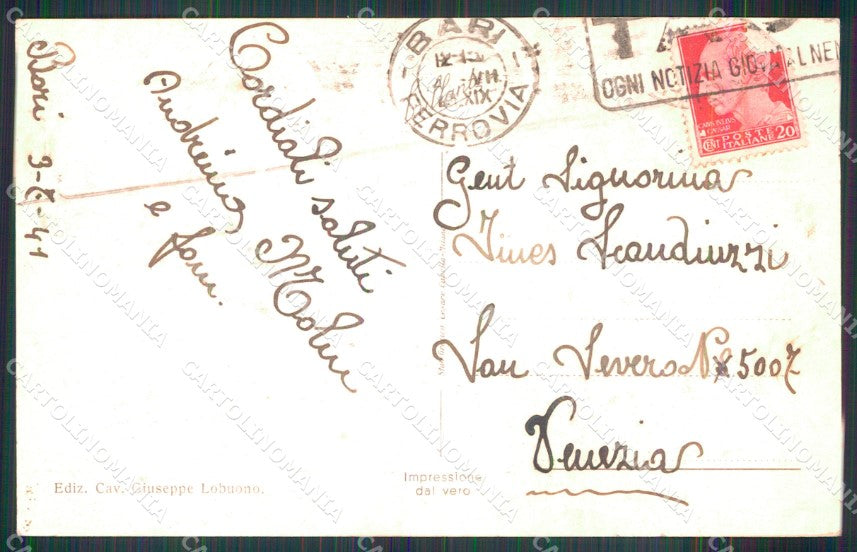 Bari 3-7-41
Cordiali saluti
Andreina Molin
e fam.
BARI
FERROVIA
XIX
OGNI NOTIZIA GIORNALE
CAIVS IVLIVS
CAESAR
CENT POSTE ITALIANE 20
Gent Signorina
Jines Scandiuzzi
San Severo N 5007
Venezia
Ediz. Cav. Giuseppe Lobuono.
Impressione
dal vero
CARTOLINOMANIA